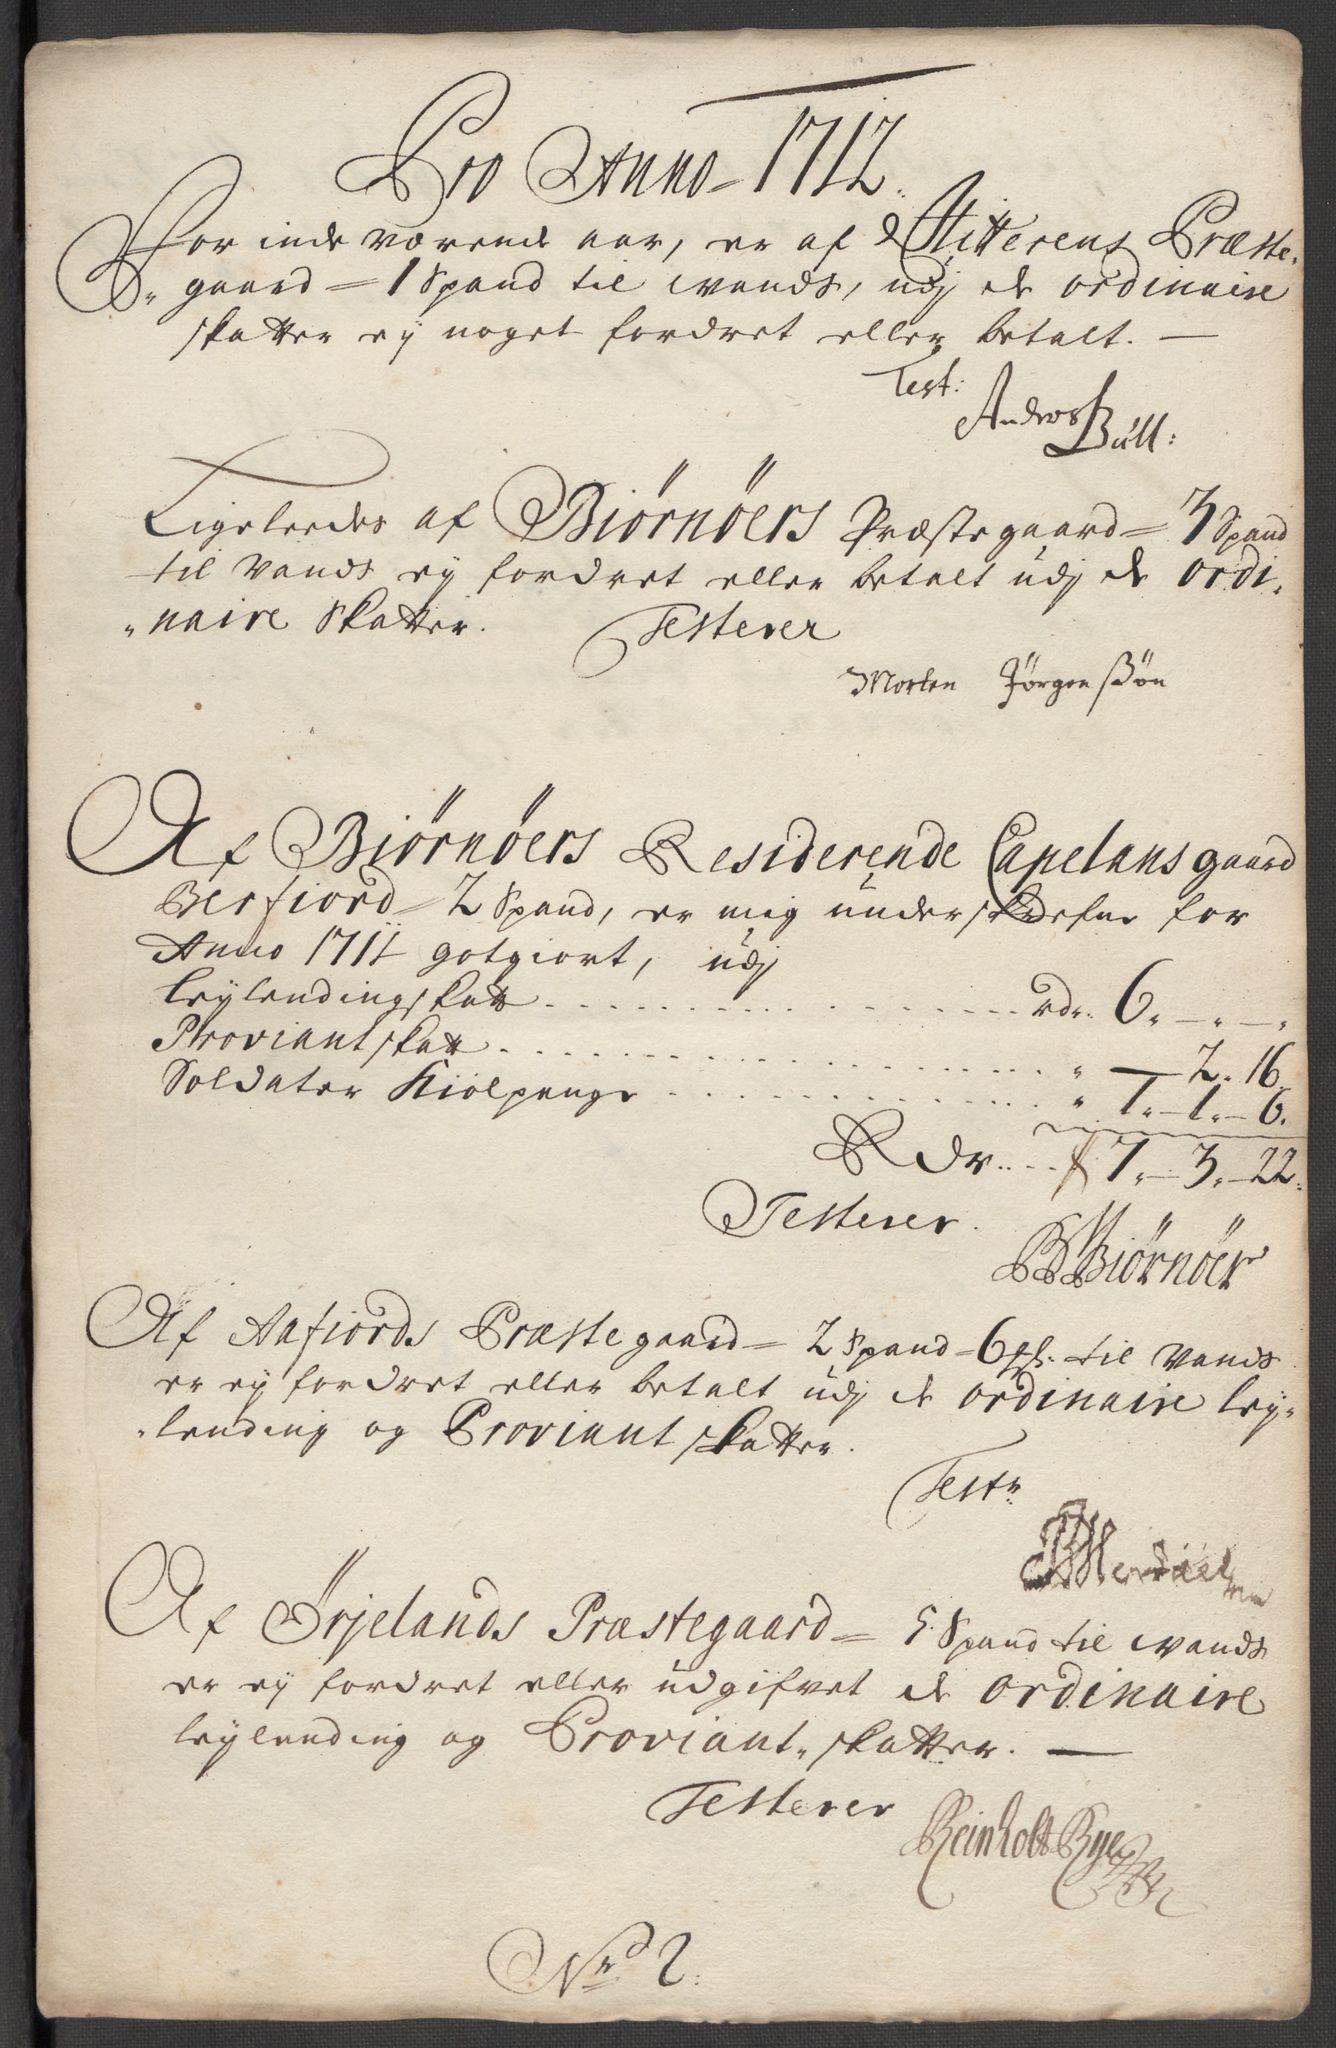 Pro Anno 1712.
For inde værende aar, er af Hitterens Præste-
„gaard = 1 Spand til wands, udj de ordinaire
skatter ej noget fordret eller betalt. —
Test:
Anders Bull:
Ligeleedes af Biörnöers Præstegaard = 3 Spand
til Vands ej fordret eller betalt udj de ordi-
„naire Skatter. Testerer
Morten Jörgensøn
Af Biörnöers Residerende Capelans gaard
Berfiord = 2 Spand, er mig under skrefne for
Anno 1712 gotgiort, udj
leylendingskatt rdr. 6. — . — .
Proviantskatt „ — 2. 16.
Soldater Kiolpenge „ 1. — 1. — 6.
Rdr. 7. — 3. — 22.
Testerer.
Biörnöer
Af Aafiords Præstegaard = 2 Spand = 6 til Vands
er ej fordret eller betalt udj de ordinaire ley-
„lending og Proviant skatter.
Testr:
Af Ørjelands Præstegaard = 5 Spand til wands
er ej fordret eller udgifvet de ordinaire
leylending og Proviant, skatter. —
Testerer
Reinholt Bye
No 2.